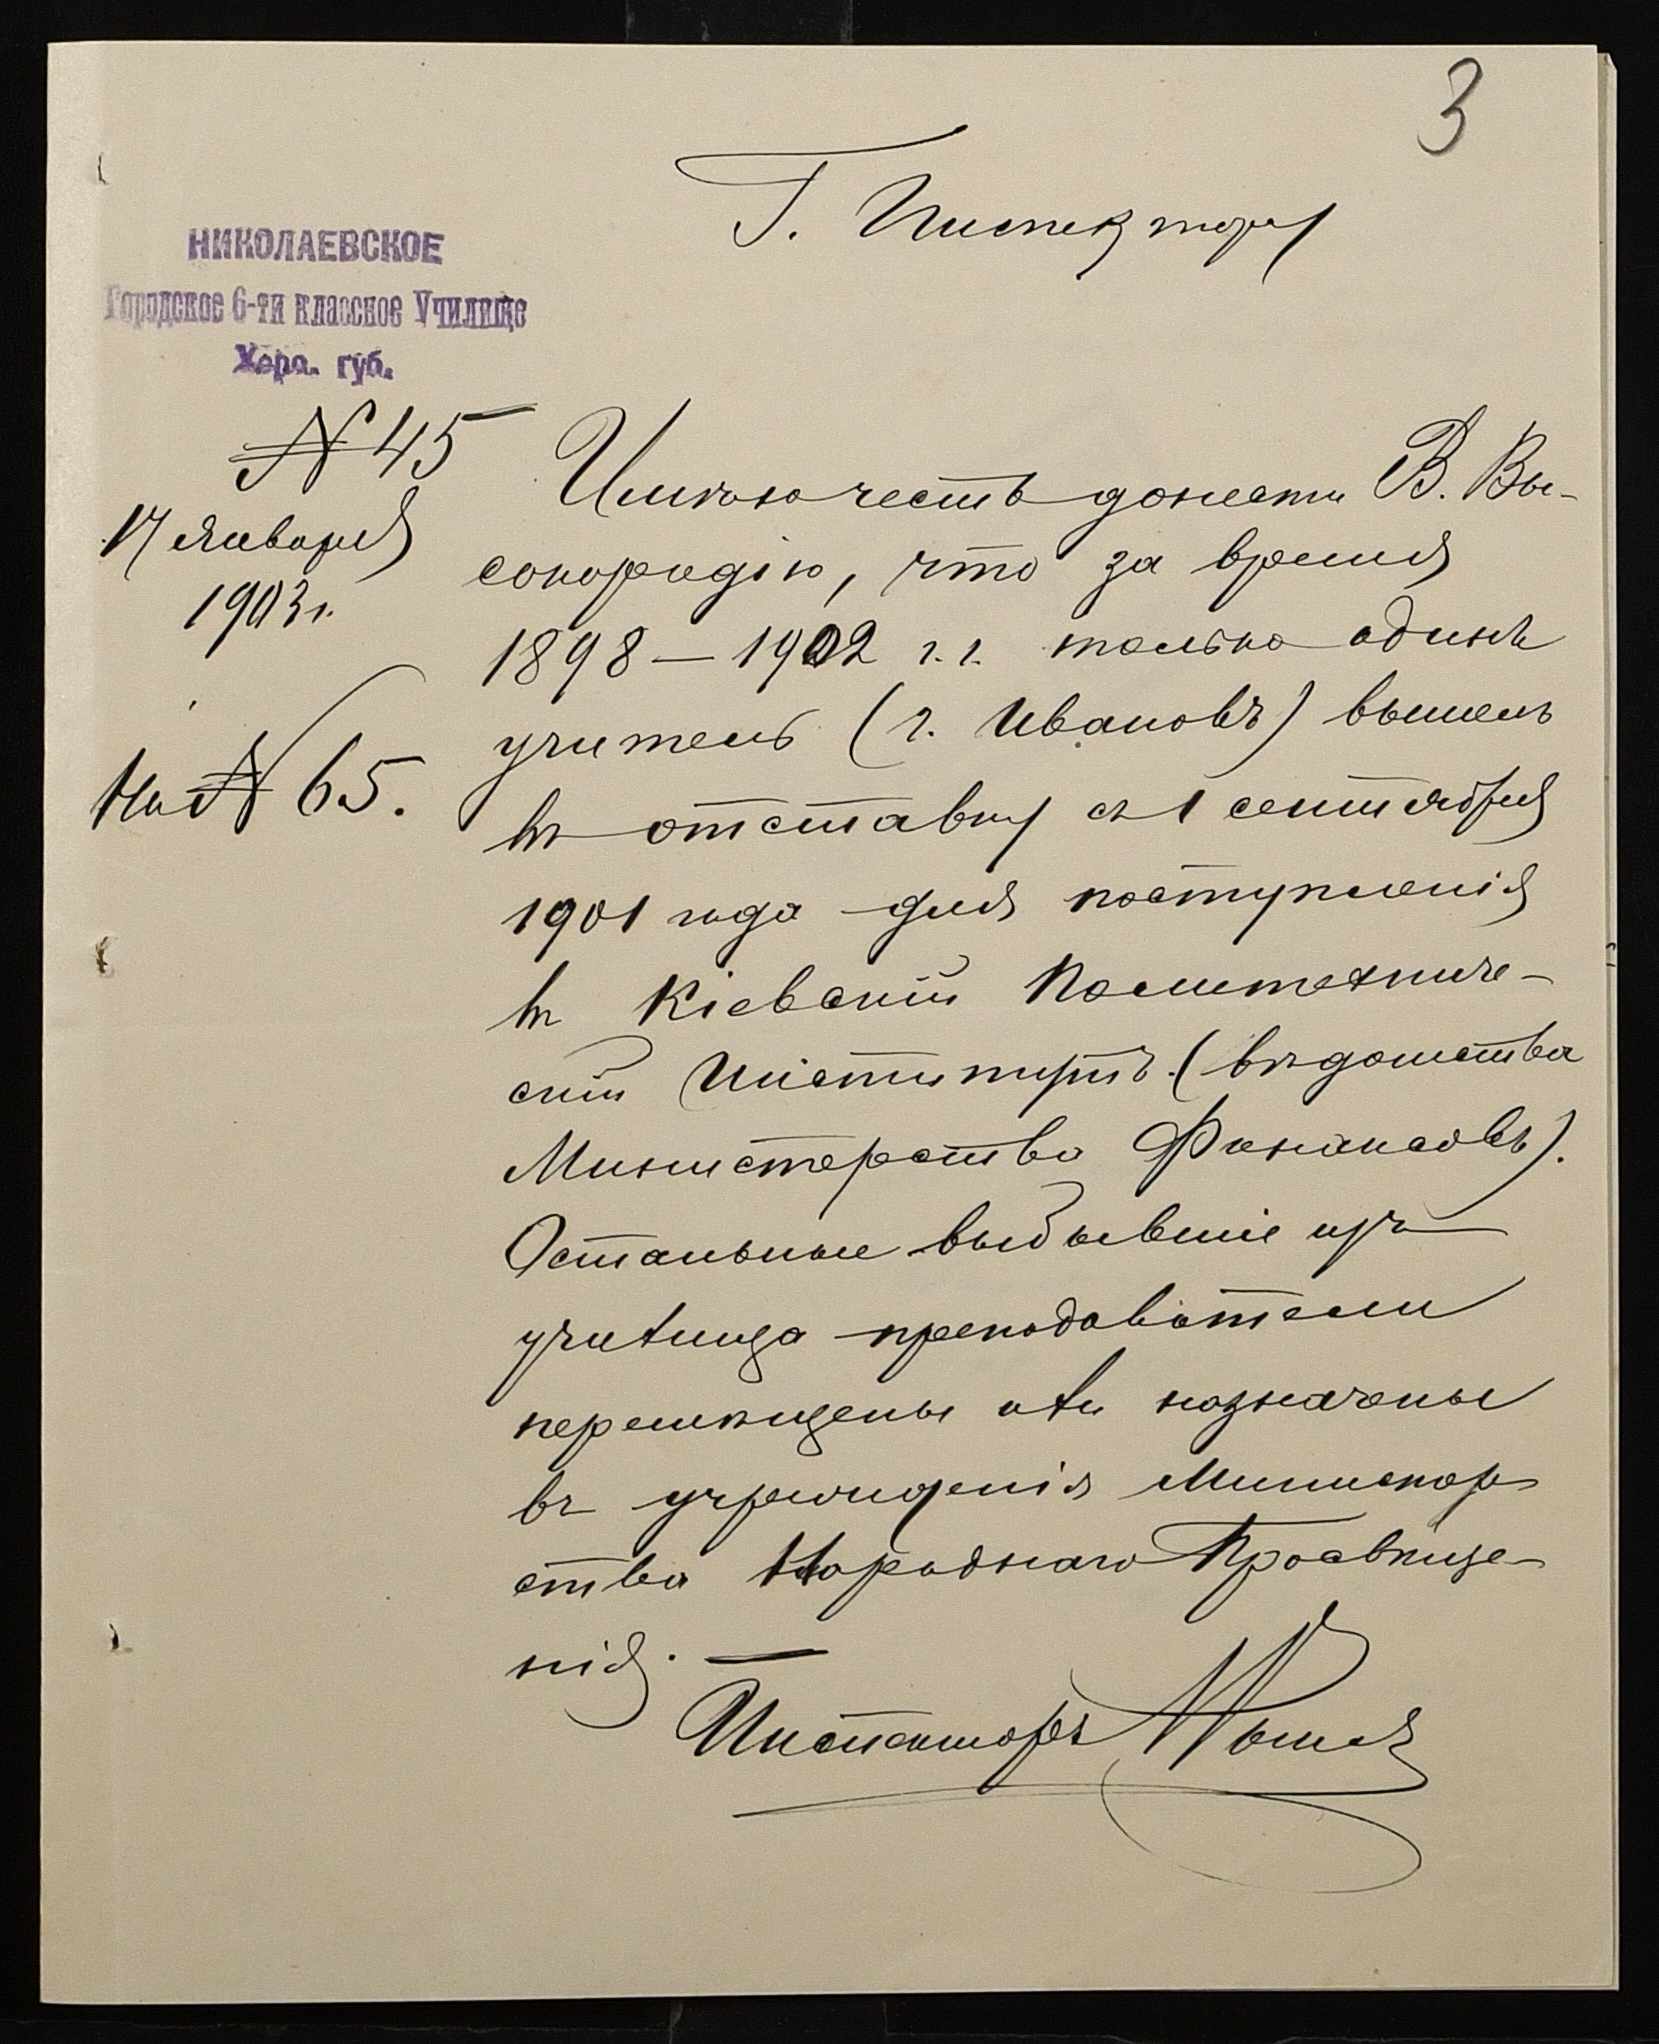 3
Г. Инспектору
НИКОЛАЕВСКОЕ
Городское 6-ти классное Училище
Херс. губ.
№ 45
17 января
1903 г.
На № 65.
Имѣю честь донести В. Вы-
сокородію, что за время
1898 — 1902 г.г. только одинъ
учитель (г. Ивановъ) вышелъ
въ отставку съ 1 сентября
1901 года для поступленія
въ Кіевскій Политехниче-
скій Институтъ (вѣдомства
Министерства Финансовъ).
Остальные выбывшіе изъ
училища преподаватели
перемѣщены или назначены
въ учрежденія Министер-
ства Народнаго Просвѣще-
нія. —
Инспекторъ